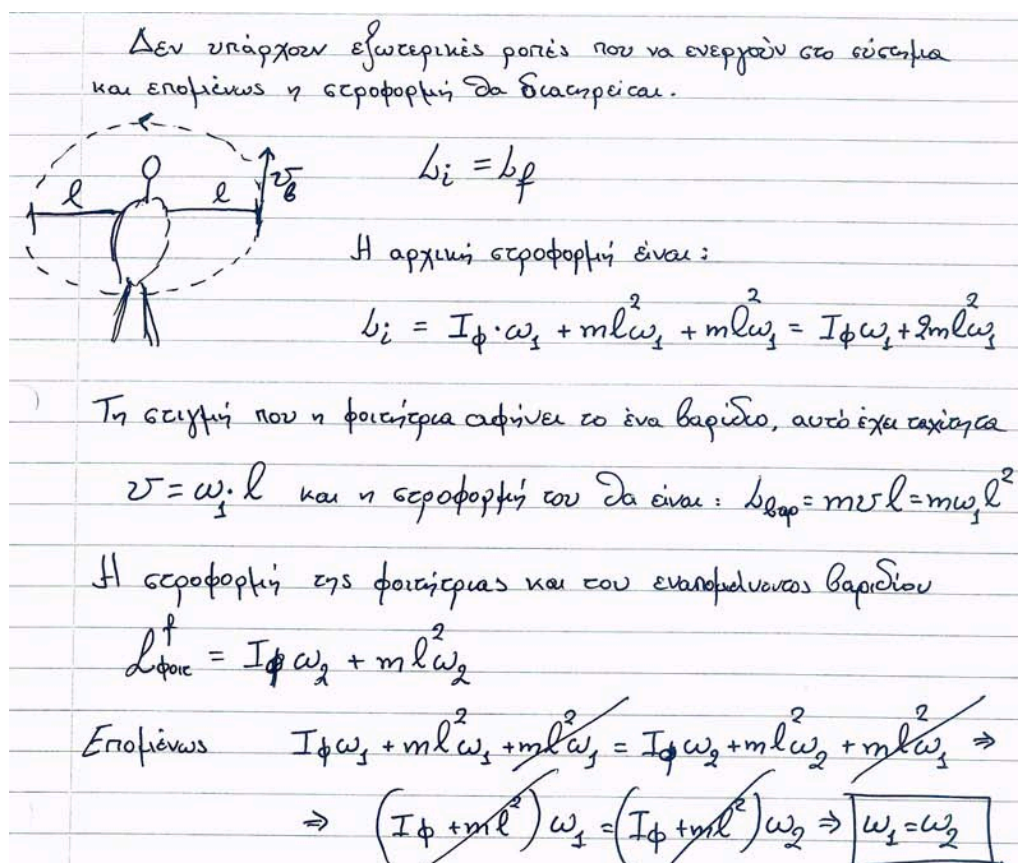 Δεν υπάρχουν εξωτερικές ροπές που να ενεργούν στο σύστημα
και επομένως η στροφορμή θα διατηρείται.
l l υ_β
L_i = L_f
Η αρχική στροφορμή είναι:
L_i = I_φ·ω_1 + ml²ω_1 + ml²ω_1 = I_φω_1 + 2ml²ω_1
Τη στιγμή που η φοιτήτρια αφήνει το ένα βαρίδιο, αυτό έχει ταχύτητα
υ = ω_1·l και η στροφορμή του θα είναι: L_βαρ = mυl = mω_1l²
Η στροφορμή της φοιτήτριας και του εναπομείναντος βαριδίου
L^f_φοιτ = I_φω_2 + ml²ω_2
Επομένως I_φω_1 + ml²ω_1 + ml²ω_1 = I_φω_2 + ml²ω_2 + ml²ω_1 ⇒
⇒ (I_φ + ml²)ω_1 = (I_φ + ml²)ω_2 ⇒ ω_1 = ω_2